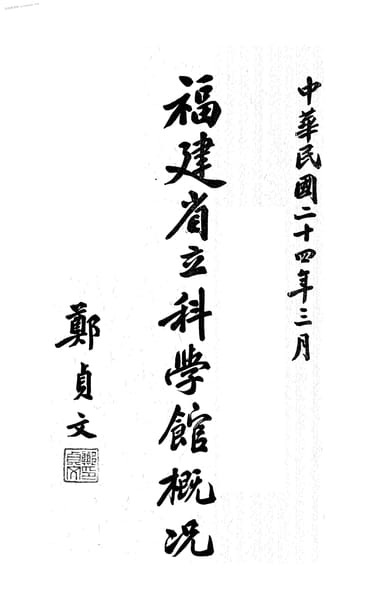 中華民國二十四年三月
福建省立科學館概况
鄭貞文